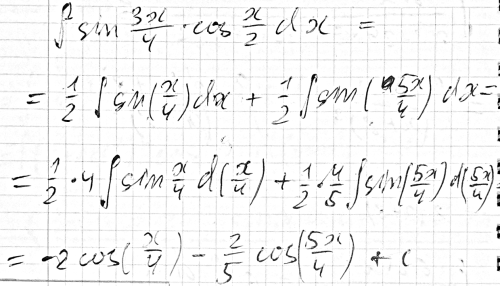 ∫ sin 3x/4 · cos x/2 dx =
= 1/2 ∫ sin(x/4) dx + 1/2 ∫ sin(5x/4) dx =
= 1/2 · 4 ∫ sin x/4 d(x/4) + 1/2 · 4/5 ∫ sin(5x/4) d(5x/4)
= -2 cos(x/4) - 2/5 cos(5x/4) + C